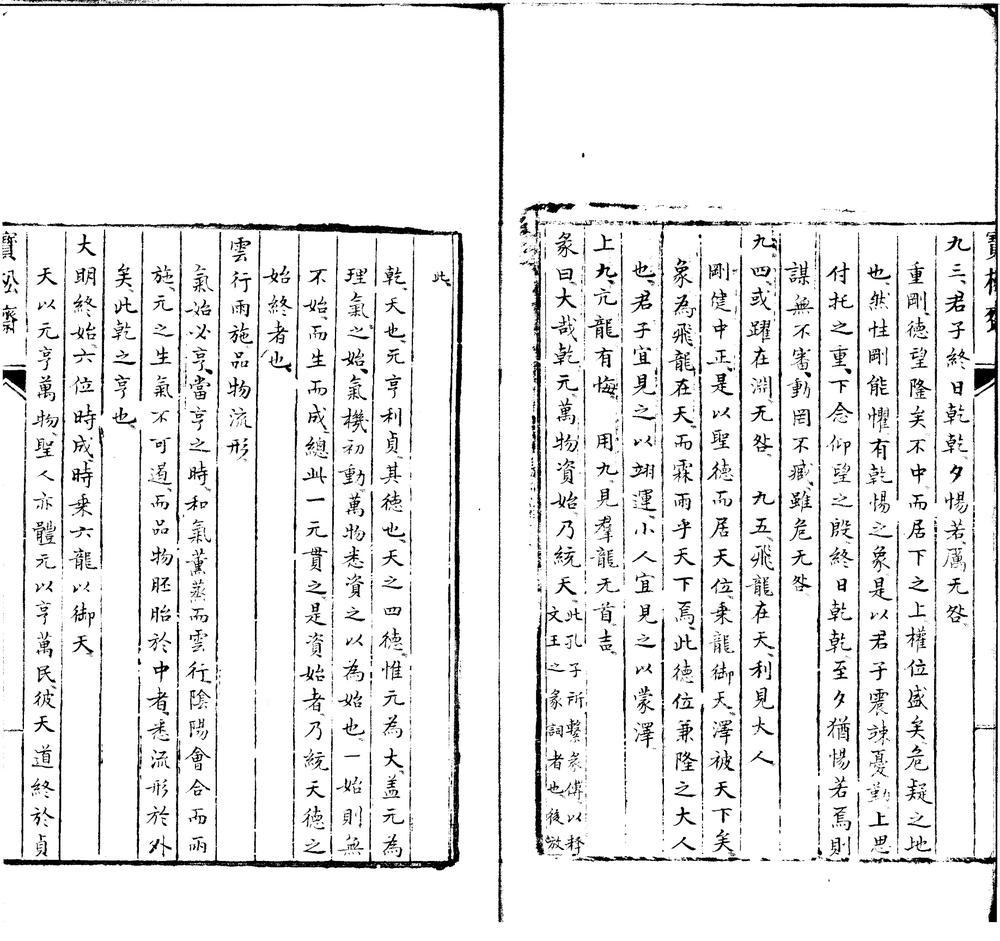 寶松齋
九三、君子終日乾乾、夕惕若、厲无咎、
重剛德望隆矣、不中而居下之上權位盛矣、危疑之地
也、然性剛能懼有乾惕之象、是以君子震竦憂勤、上思
付托之重、下念仰望之殷、終日乾乾、至夕猶惕若焉、則
謀無不審、動罔不臧、雖危无咎
九四、或躍在淵、无咎、九五、飛龍在天、利見大人
剛健中正、是以聖德而居天位、乘龍御天、澤被天下矣、
象為飛龍在天、而霖雨乎天下焉、此德位兼隆之大人
也、君子宜見之以翊運、小人宜見之以蒙澤
上九、亢龍有悔、用九、見羣龍无首、吉
彖曰、大哉乾元、萬物資始、乃統天、此孔子所繫彖傳以釋
文王之彖詞者也、後放
此、
乾、天也、元亨利貞、其德也、天之四德惟元為大、蓋元為
理氣之始、氣機初動、萬物悉資之以為始也、一始則無
不始、而生而成、總此一元貫之、是資始者、乃統天德之
始終者也、
雲行雨施、品物流形、
氣始必亨、當亨之時、和氣薰蒸而雲行、陰陽會合而雨
施、元之生氣不可遏、而品物胚胎於中者、悉流形於外
矣、此乾之亨也、
大明終始、六位時成、時乘六龍以御天、
天以元亨萬物、聖人亦體元以亨萬民、彼天道終於貞
寶松齋